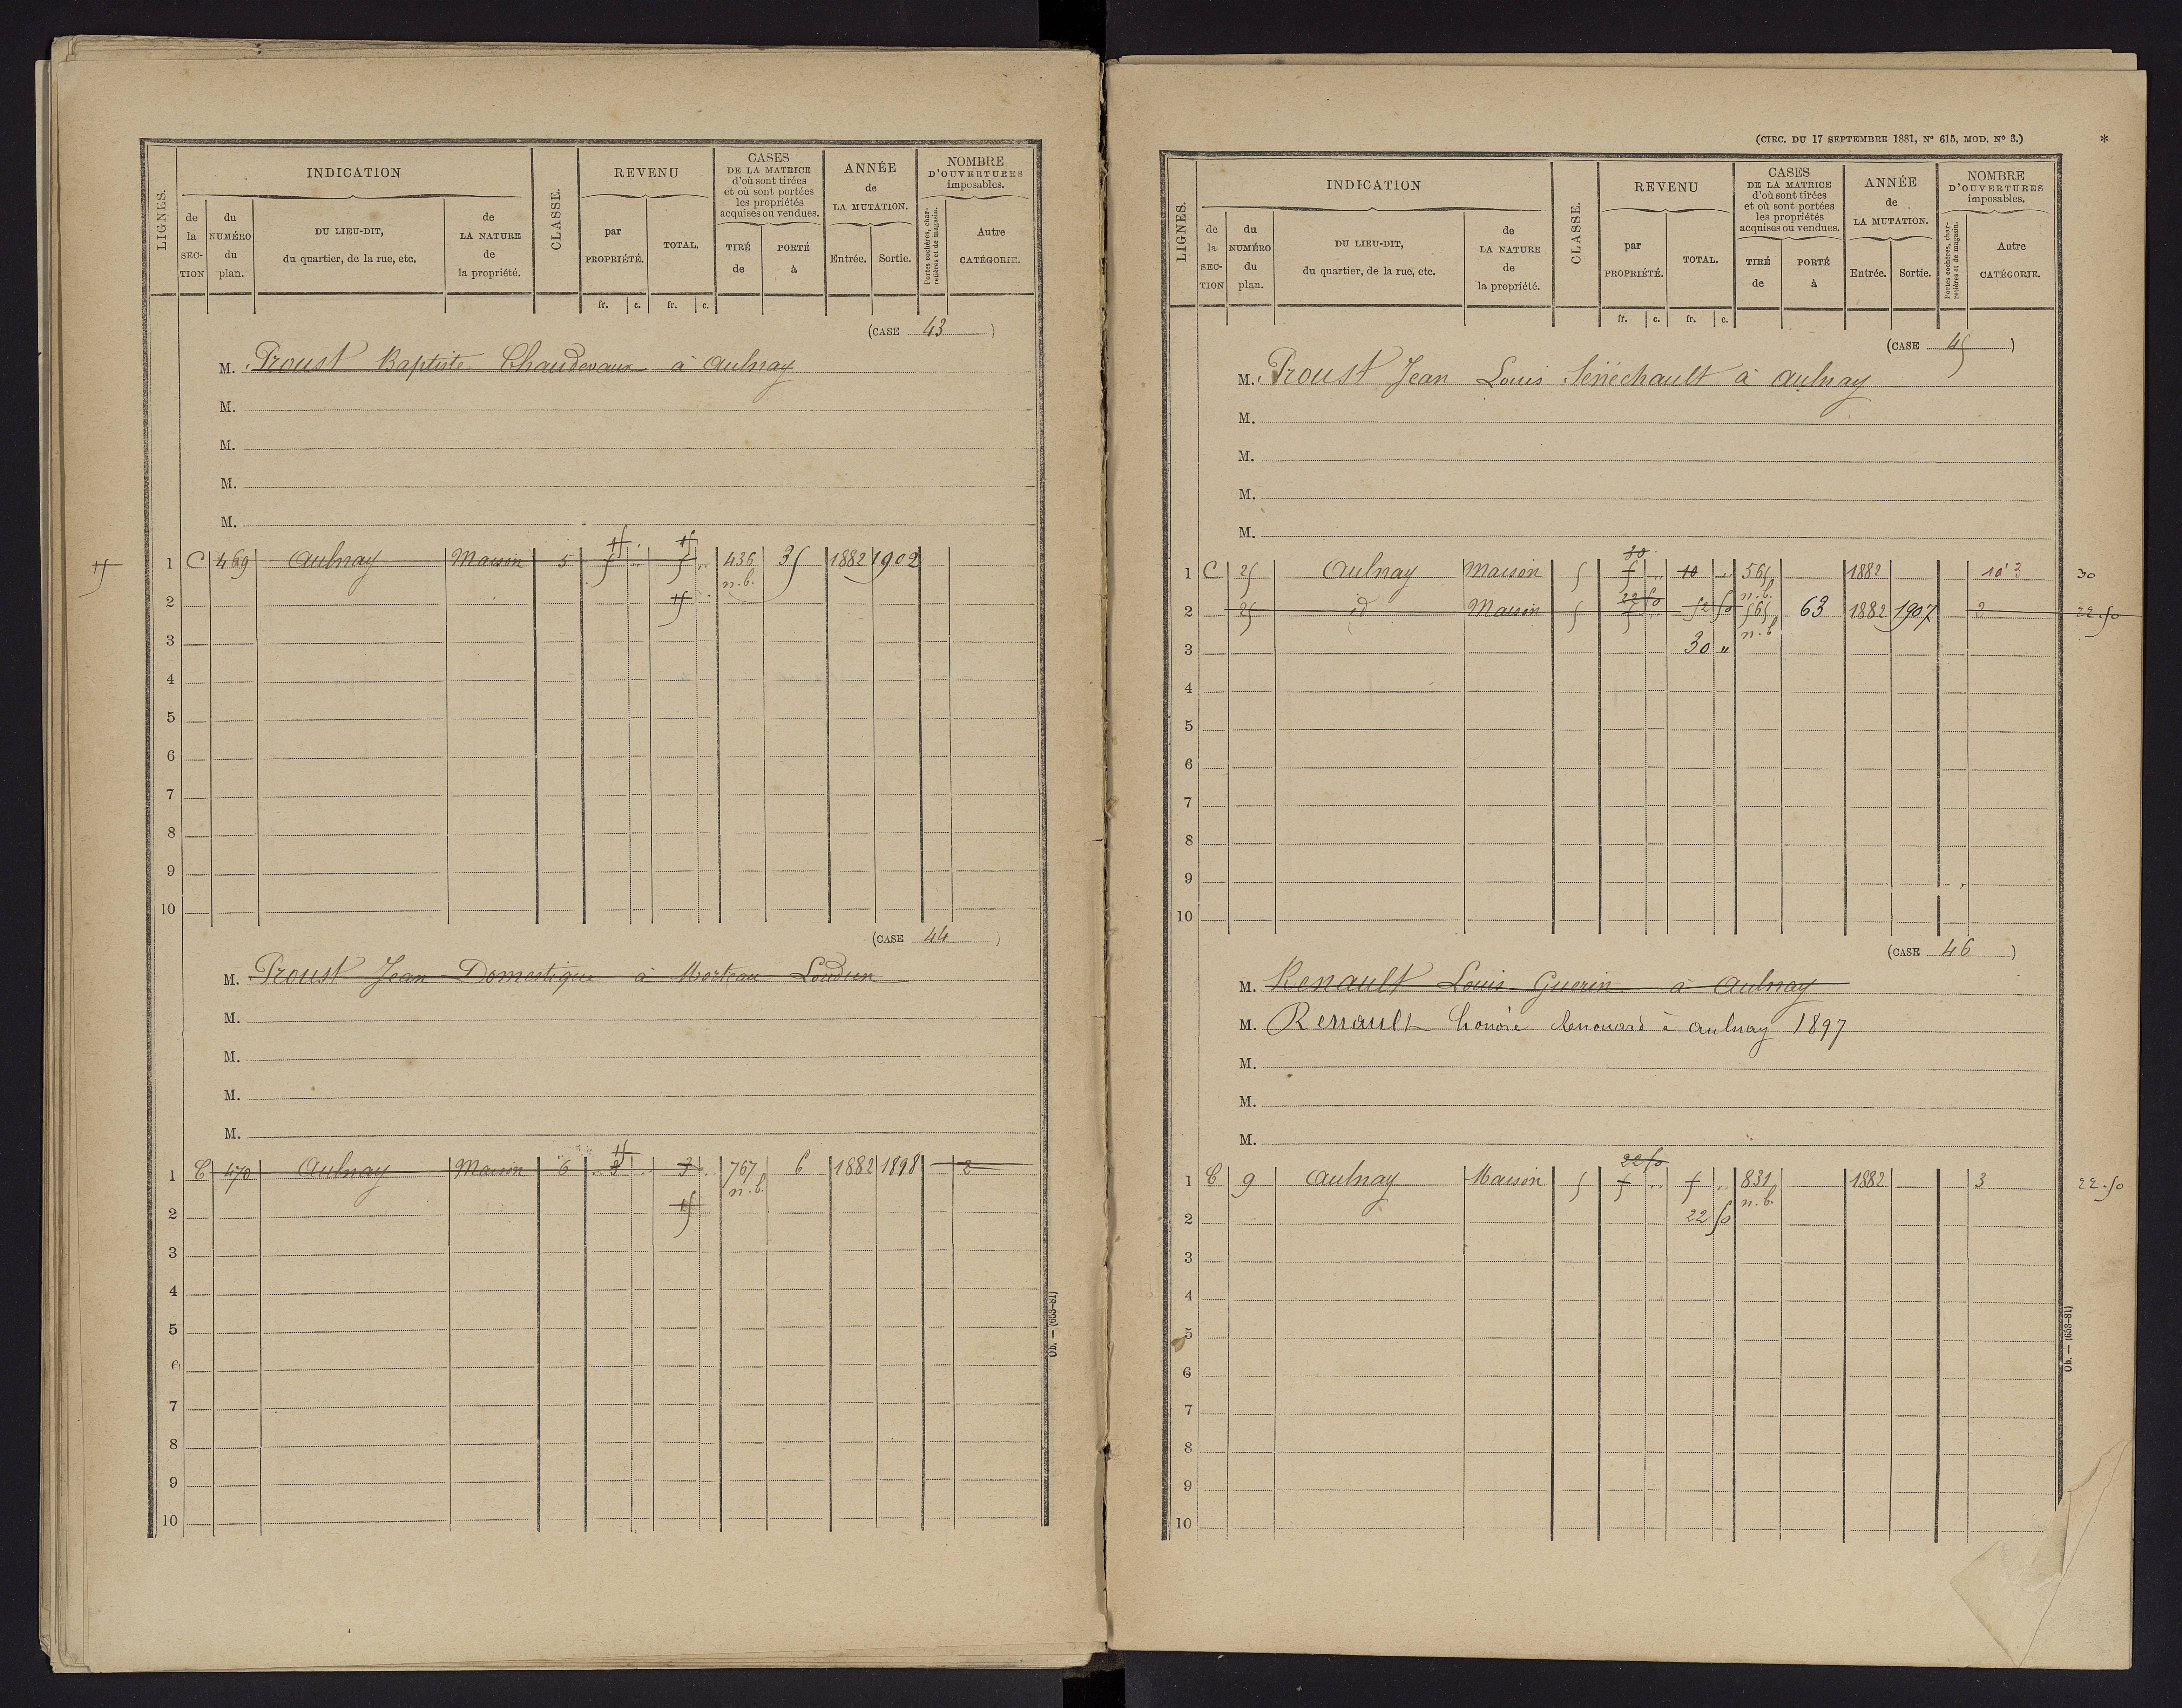 INDICATION
REVENU
CASES
DE LA MATRICE
d'où sont tirées
et où sont portées
les propriétés
acquises ou vendues.
ANNÉE
de
LA MUTATION.
NOMBRE
D'OUVERTURES
imposables.
LIGNES.
de la SECTION
du NUMÉRO du plan.
DU LIEU-DIT,
du quartier, de la rue, etc.
de LA NATURE de la propriété.
CLASSE.
par PROPRIÉTÉ.
TOTAL.
TIRÉ de
PORTÉ à
Entrée.
Sortie.
Portes cochères, charretières et de magasin.
Autre CATÉGORIE.
fr. c. fr. c.
(CASE 43)
M. Proust Baptiste Chaudevaux à Aulnay
M.
M.
M.
M.
15 15
15 1 C 469 Aulnay Maison 5 5 " 5 " 436 35 1882 1902
n.b.
2 15
3
4
5
6
7
8
9
10
(CASE 44)
M. Proust Jean Domestique à Morteau Loudun
M.
M.
M.
M.
15
1 C 470 Aulnay Maison 6 3 " 3 " 767 6 1882 1898 2
n.b.
2 15
3
4
5
6
7
8
9
10
Ob. — (653-81)
(CIRC. DU 17 SEPTEMBRE 1881, N° 615, MOD. N° 3.)
*
INDICATION
REVENU
CASES
DE LA MATRICE
d'où sont tirées
et où sont portées
les propriétés
acquises ou vendues.
ANNÉE
de
LA MUTATION.
NOMBRE
D'OUVERTURES
imposables.
LIGNES.
de la SECTION
du NUMÉRO du plan.
DU LIEU-DIT,
du quartier, de la rue, etc.
de LA NATURE de la propriété.
CLASSE.
par PROPRIÉTÉ.
TOTAL.
TIRÉ de
PORTÉ à
Entrée.
Sortie.
Portes cochères, charretières et de magasin.
Autre CATÉGORIE.
fr. c. fr. c.
(CASE 45)
M. Proust Jean Louis Sénéchault à Aulnay
M.
M.
M.
M.
30
1 C 25 Aulnay Maison 5 5 " 10 " 565 1882 3 30
22 50 n.b.
2 25 id Maison 5 5 " 52 50 565 63 1882 1907 3 22.50
n.b.
3 30 "
4
5
6
7
8
9
10
(CASE 46)
M. Renault Louis Guerin à Aulnay
M. Renault honoré Renouard à aulnay 1897
M.
M.
M.
22 50
1 C 9 Aulnay Maison 5 5 " 5 " 831 1882 3 22.50
n.b.
2 22 50
3
4
5
6
7
8
9
10
Ob. — (653-81)